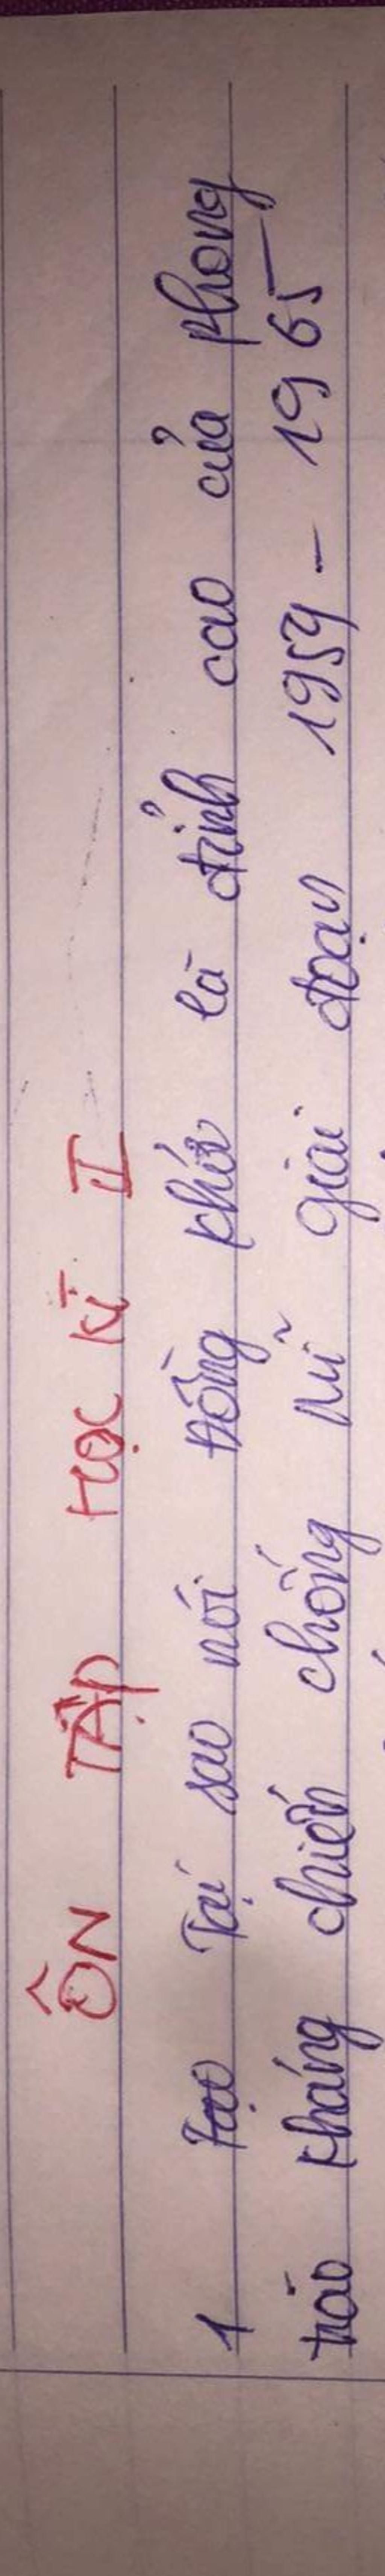 ÔN TẬP HỌC KÌ II
1 Tại sao nói Đồng khởi là đỉnh cao của phong
trào kháng chiến chống Mĩ giai đoạn 1954 - 1965